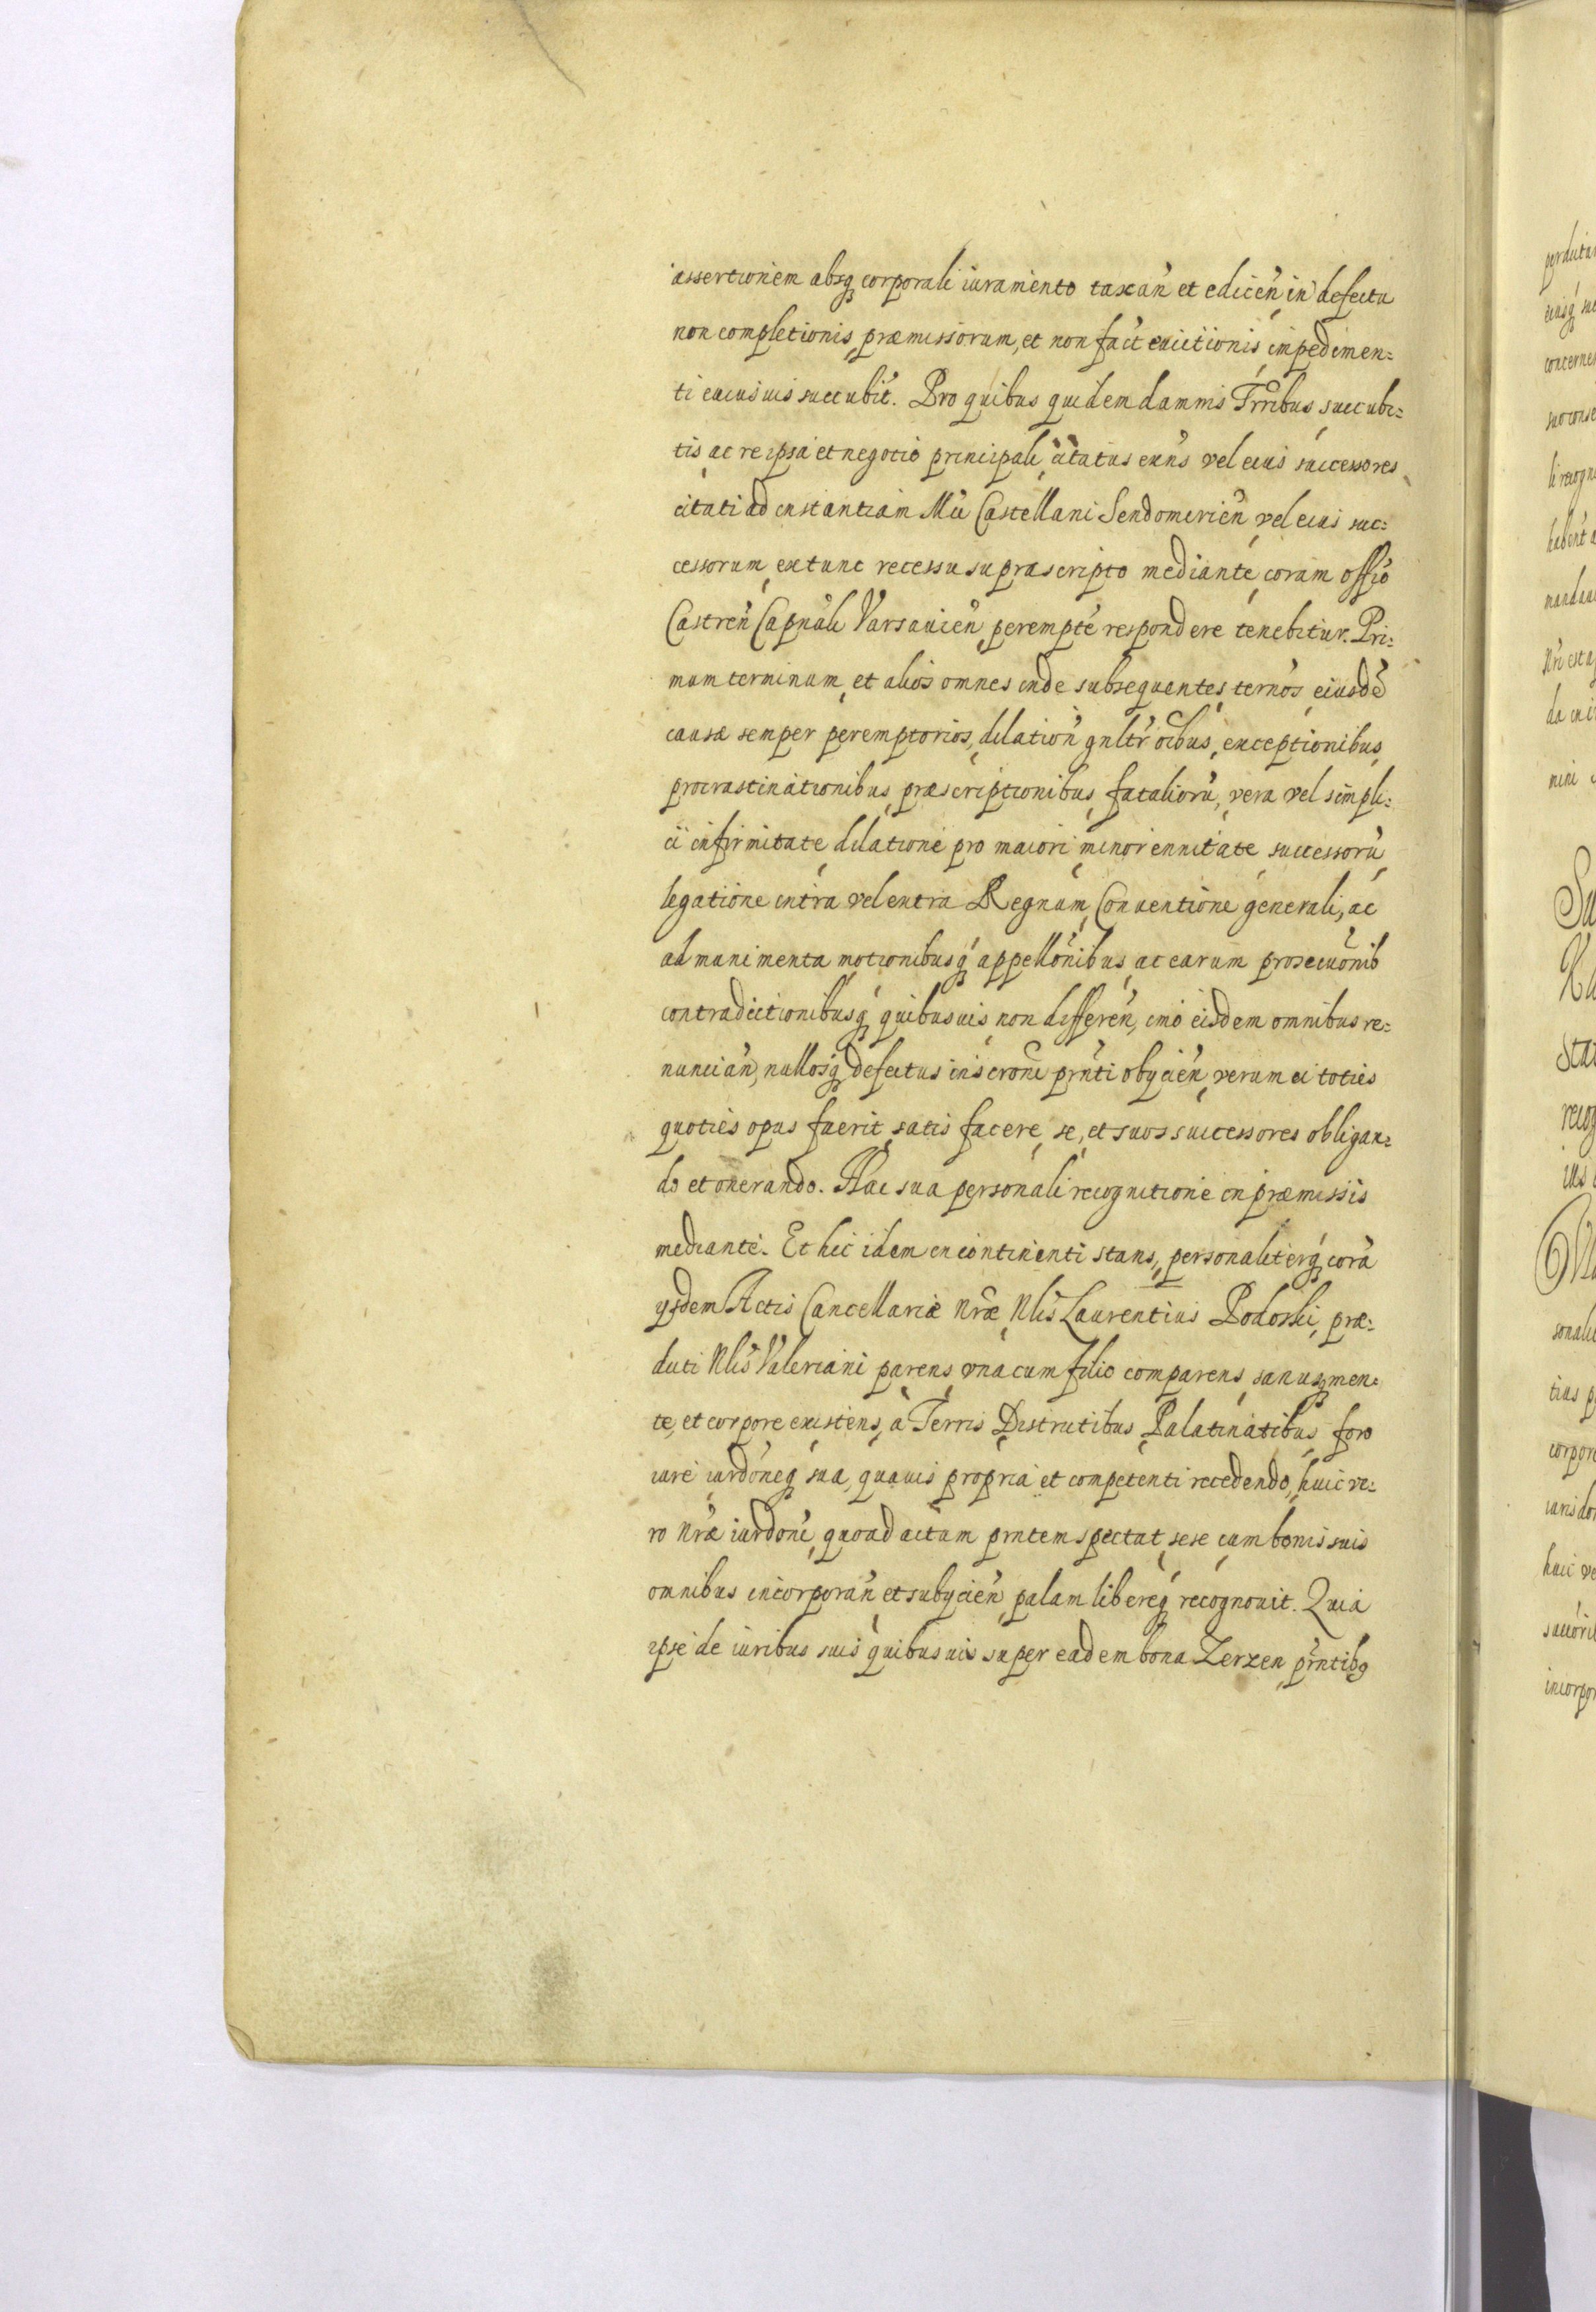 assertionem absq̨ corporali iuramento taxan̄ et edicen̄ in defectu
non completionis, præmissorum, et non fact euictionis, impedimen=
ti cuiusuis succubit. Pro quibus quidem damnis Trribus, succubi=
tis, ac re ipsa et negotio principali, citatus exn̄s vel eius successores
citati ad instantiam Mci Castellani Sendomirien̄, vel eius suc=
cessorum, extunc recessu suprascripto mediante, coram offio
Castren̄ Capnāli Varsauien̄, perempte respondere tenebitur. Pri=
mum terminum, et alios omnes inde subsequentes, ternos, eiusdē
causæ semper peremptorios, dilation̄ gnltr̄ oībus, exceptionibus,
procrastinationibus, præscriptionibus, fataliorū, vera vel simpli=
ci infirmitate, dilatione pro maiori, minorennitate, successorū
legatione intra vel extra Regnum, Conuentione generali, ac
ad munimenta, motionibusq̨ appellōnibus, ac earum prosecuōnib
contradictionibusq̨ quibusuis, non differen̄, imo eisdem omnibus re=
nuncian̄, nullosq̨ defectus inscrōni prn̄ti obijcien̄, verum ei toties
quoties opus fuerit, satis facere, se, et suos successores obligan=
do et onerando. Hac sua personali recognitione in præmissis
mediante. Et hic idem in continenti stans, personaliterq̨ corā
ysdem Actis Cancellariæ nr̄æ, Nlis Laurentius Podoski, præ=
dicti Nlis Valeriani parens, vna cum filio comparens, sanusq̨ men=
te, et corpore existens, a Terris, Districtibus, Palatinatibus, foro
iure iurdōneq̨ sua, quauis propria et competenti recedendo, huic ve=
ro nr̄æ iurdōni, quo ad actum prn̄tem spectat, sese cum bonis suis
omnibus incorporan̄ et subijcien̄, palam libereq̨ recognouit. Quia
ipse de iuribus suis quibusuis super eadem bona Zerzen, prn̄tibq